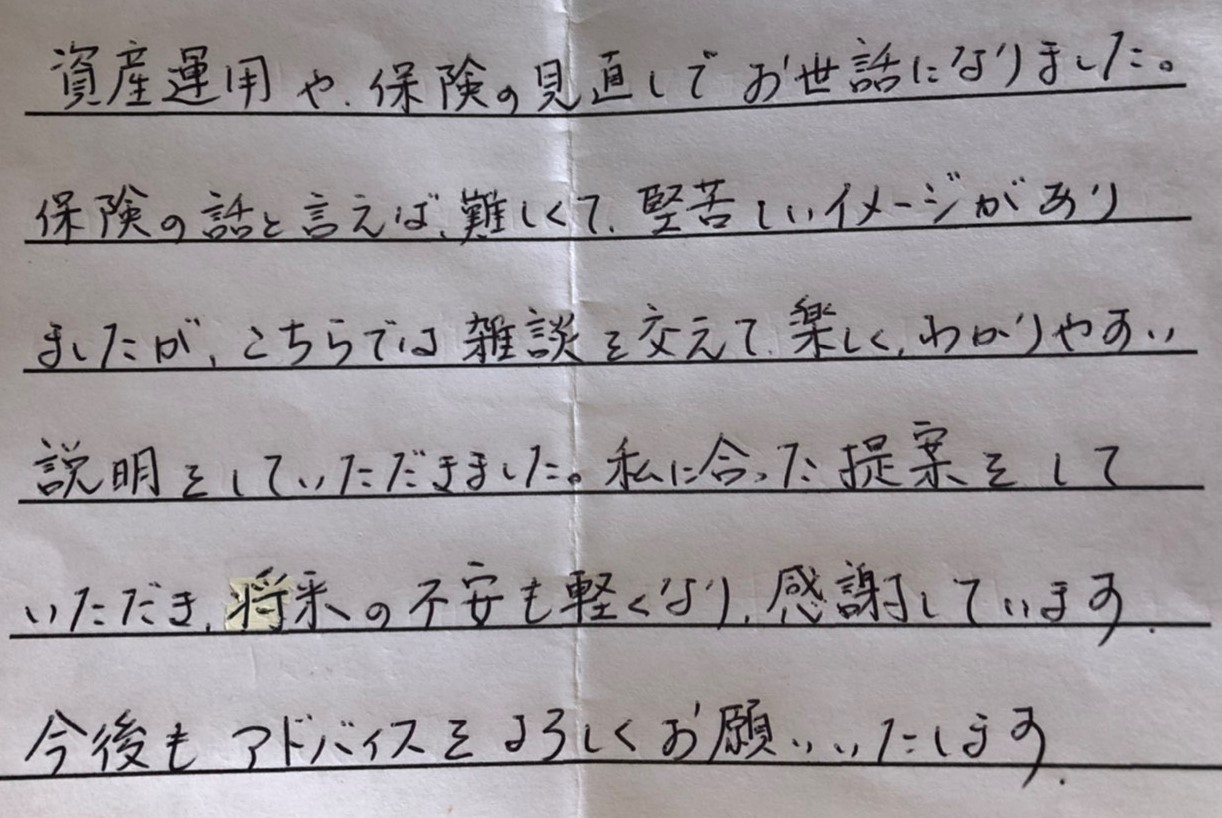 資産運用や、保険の見直しでお世話になりました。
保険の話と言えば、難しくて、堅苦しいイメージがあり
ましたが、こちらでは雑談を交えて、楽しく、わかりやすい
説明をしていただきました。私に合った提案をして
いただき、将来の不安も軽くなり、感謝しています。
今後もアドバイスをよろしくお願いいたします。